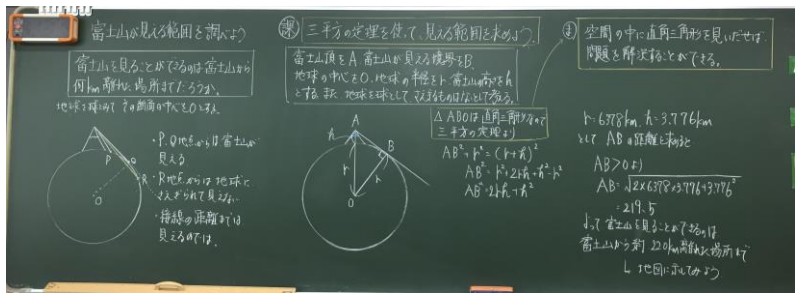 富士山が見える範囲を調べよう
富士山を見ることができるのは富士山から
何km離れた場所までだろうか。
O
P
Q
R
・P、Q地点からは富士山が
見える
・R地点からは地球に
さえぎられて見えない
・接線の距離までは
見えるのでは。
課
三平方の定理を使って、見える範囲を求めよう。
富士山頂をA、富士山が見える境界をB、
地球の中心をO、地球の半径をr、富士山の高さをh
とする。また、地球を球として、さえぎるものはないとして考える。
A
B
h
r
r
O
△ABOは直角三角形なので
三平方の定理より
AB²+r²=(r+h)²
AB²=r²+2rh+h²-r²
AB²=2rh+h²
ま
空間の中に直角三角形を見いだせば、
問題を解決することができる。
r=6378km、h=3.776km
として ABの距離を求めると
AB>0より
AB=√2×6378×3.776+3.776²
=219.5
よって富士山を見ることができるのは
富士山から約220km離れた場所まで
地図に示してみよう